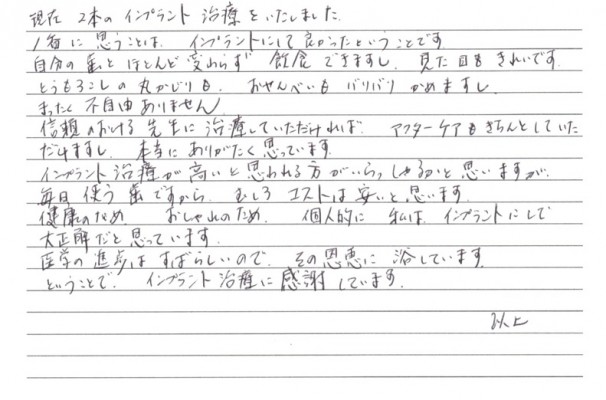 現在 2本の インプラント 治療をいたしました.
1番に思うことは、インプラントにして良かったということです
自分の歯とほとんど変わらず 飲食できますし、見た目もきれいです.
とうもろこしの丸かじりも、おせんべいも バリバリ かめますし
まったく不自由ありません
信頼のおける先生に治療していただければ、アフターケアもきちんとしていた
だけますし 本当にありがたく思っています.
インプラント治療が高いと思われる方がいらっしゃるかと思いますが、
毎日使う歯ですから、むしろ コストは安いと思います.
健康のため おしゃれのため、個人的に 私は、インプラントにして
大正解だと思っています.
医学の進歩はすばらしいので、その恩恵に 浴しています.
ということで、インプラント治療に感謝しています.
以上